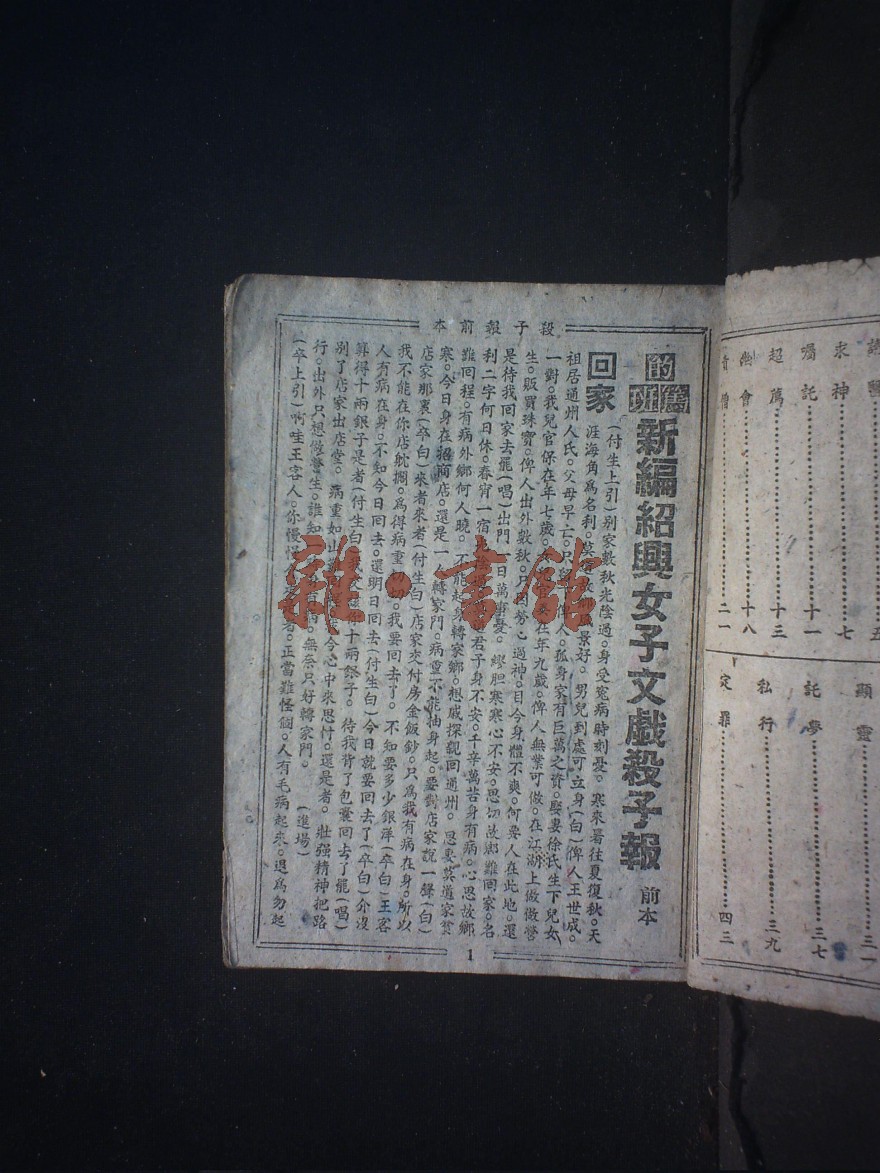 詩
求神 七
囑託 十一
超薦 十三
幽會 十八
責僧 二一
顯靈 三一
託夢 三七
私行 三九
定罪 四三
的篤班
新編紹興女子文戲殺子報 前本
殺子報前本
回家
(付生上引)別家數秋光陰過。身受寃病時刻憂。寒來暑往夏復秋。天
涯海角爲名利。景好。男兒到處可立身(白)俾人王世成。
祖居通州人氏。父母早亡。俾人。孤身家有巨萬之資。娶妻徐氏生下兒女
一對。我兒官保在年七歲。在年九歲。俾人無業可做。在江湖上做做營
生。販買珠寶。俾人出外數秋。只因勞心過神。目今身體不爽。何要人在此地。還
是待我回家去罷(唱)出門一日萬事憂。膠胆寒寒心不安。思切故鄉難回家。名
利二字何日休。春宵一宿君子身不安。千辛萬苦身有病。心思故鄉
難回程。有病外鄉何人曉。不能起身轉家鄉。想戚探親回通州。恩妻莫道家貧
寒。今日身在招商店。還是一心轉家門。病重不能抽身起。要對店家說一聲(白)
店家那裏(卒白)來者來者(付生白)店家交付房金飯鈔。只爲我有病在身。所以
我不能在你店躭擱。爲得病重。我要回去了。不知要多少銀洋(卒白)王客
人有病在身。不知今日回去。還明日回去(付生白)今日就要回去了(卒白)介沒
算得十兩銀子是者(付生白)十兩銀子。待我背了包囊回去了罷(唱)
別了店家出店堂。病重如山今心中來思忖。還是者。壯强精神把路
行。出外只想做營生。誰知一無奈只好轉家門。(進場)
(卒上引)啊哇王客人。你慢慢者。正當難怪個。人有毛病起來。退爲勿起
1
雜·書館